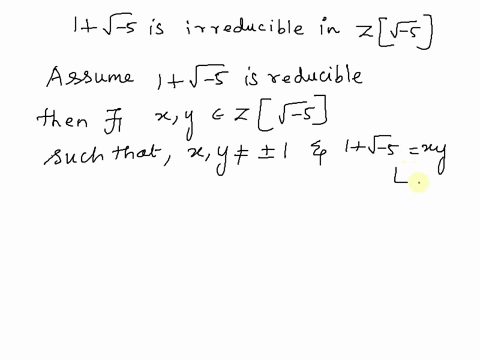 1+√-5 is irreducible in Z[√-5]
Assume 1+√-5 is reducible
then ∃ x, y ∈ Z[√-5]
such that, x, y ≠ ±1 & 1+√-5 = xy
L